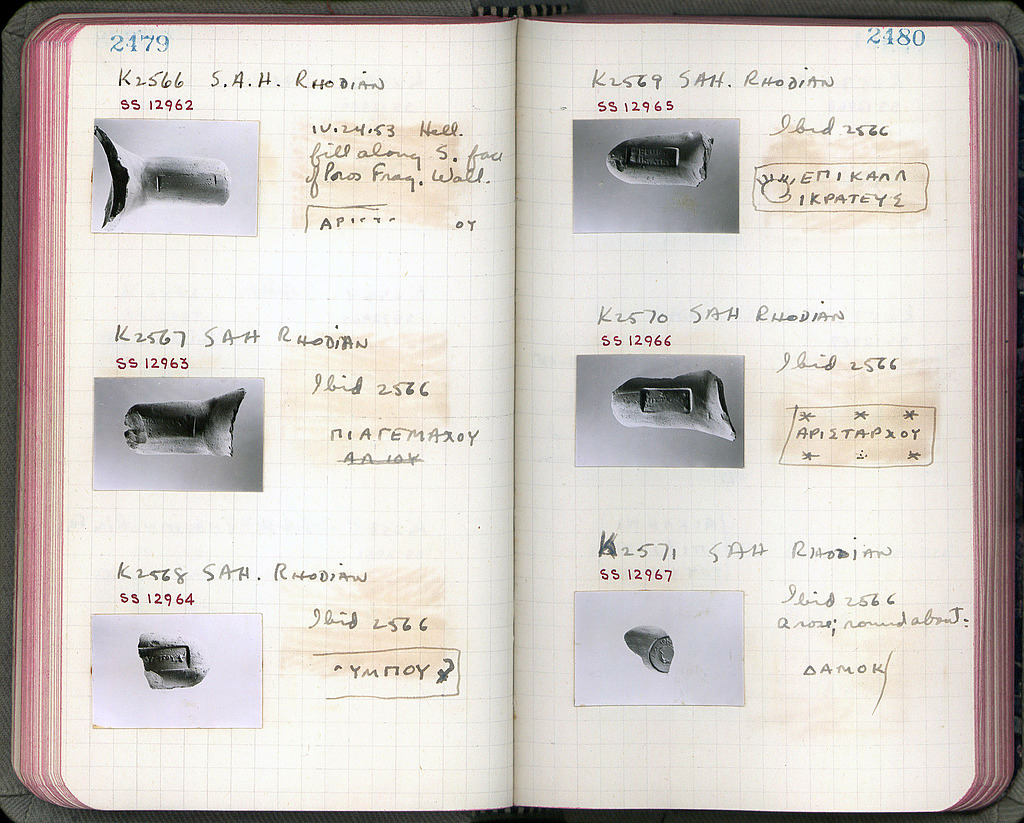 2479
K2566 S.A.H. RHODIAN
SS 12962
IV.24.53 Hell.
fill along S. face
of Poros Frag. Wall.
ΑΡΙΣΤ ΟΥ
K2567 SAH RHODIAN
SS 12963
Ibid 2566
ΠΙΑΓΕΜΑΧΟΥ
ΔΑΛΙΟΥ
K2568 SAH. RHODIAN
SS 12964
Ibid 2566
ΥΜΠΟΥ ?
2480
K2569 SAH. RHODIAN
SS 12965
Ibid 2566
ΕΠΙΚΑΛΛ
ΙΚΡΑΤΕΥΣ
K2570 SAH RHODIAN
SS 12966
Ibid 2566
* * *
ΑΡΙΣΤΑΡΧΟΥ
* *
K2571 SAH RHODIAN
SS 12967
Ibid 2566
a rose; round about:
ΔΑΜΟΚ